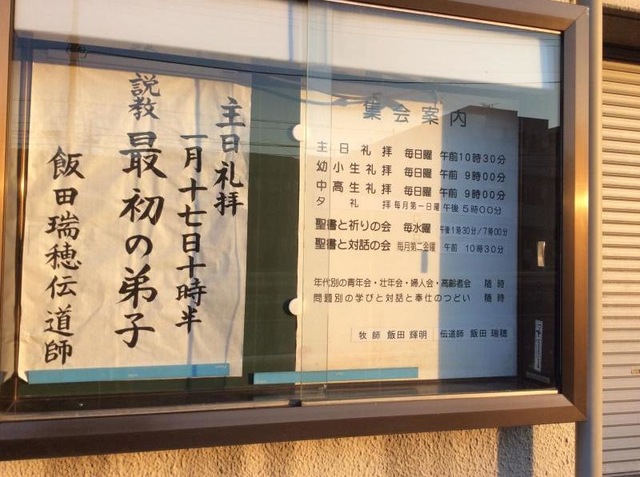 主日礼拝
一月十七日十時半
説教 最初の弟子
飯田瑞穂伝道師
集会案内
主日礼拝 毎日曜 午前10時30分
幼小生礼拝 毎日曜 午前 9時00分
中高生礼拝 毎日曜 午前 9時00分
夕礼拝 毎月第一日曜 午後5時00分
聖書と祈りの会 毎水曜 午後1時30分/7時00分
聖書と対話の会 毎月第二金曜 午前 10時30分
年代別の青年会・壮年会・婦人会・高齢者会 随時
問題別の学びと対話と奉仕のつどい 随時
牧師 飯田 輝明 伝道師 飯田 瑞穂